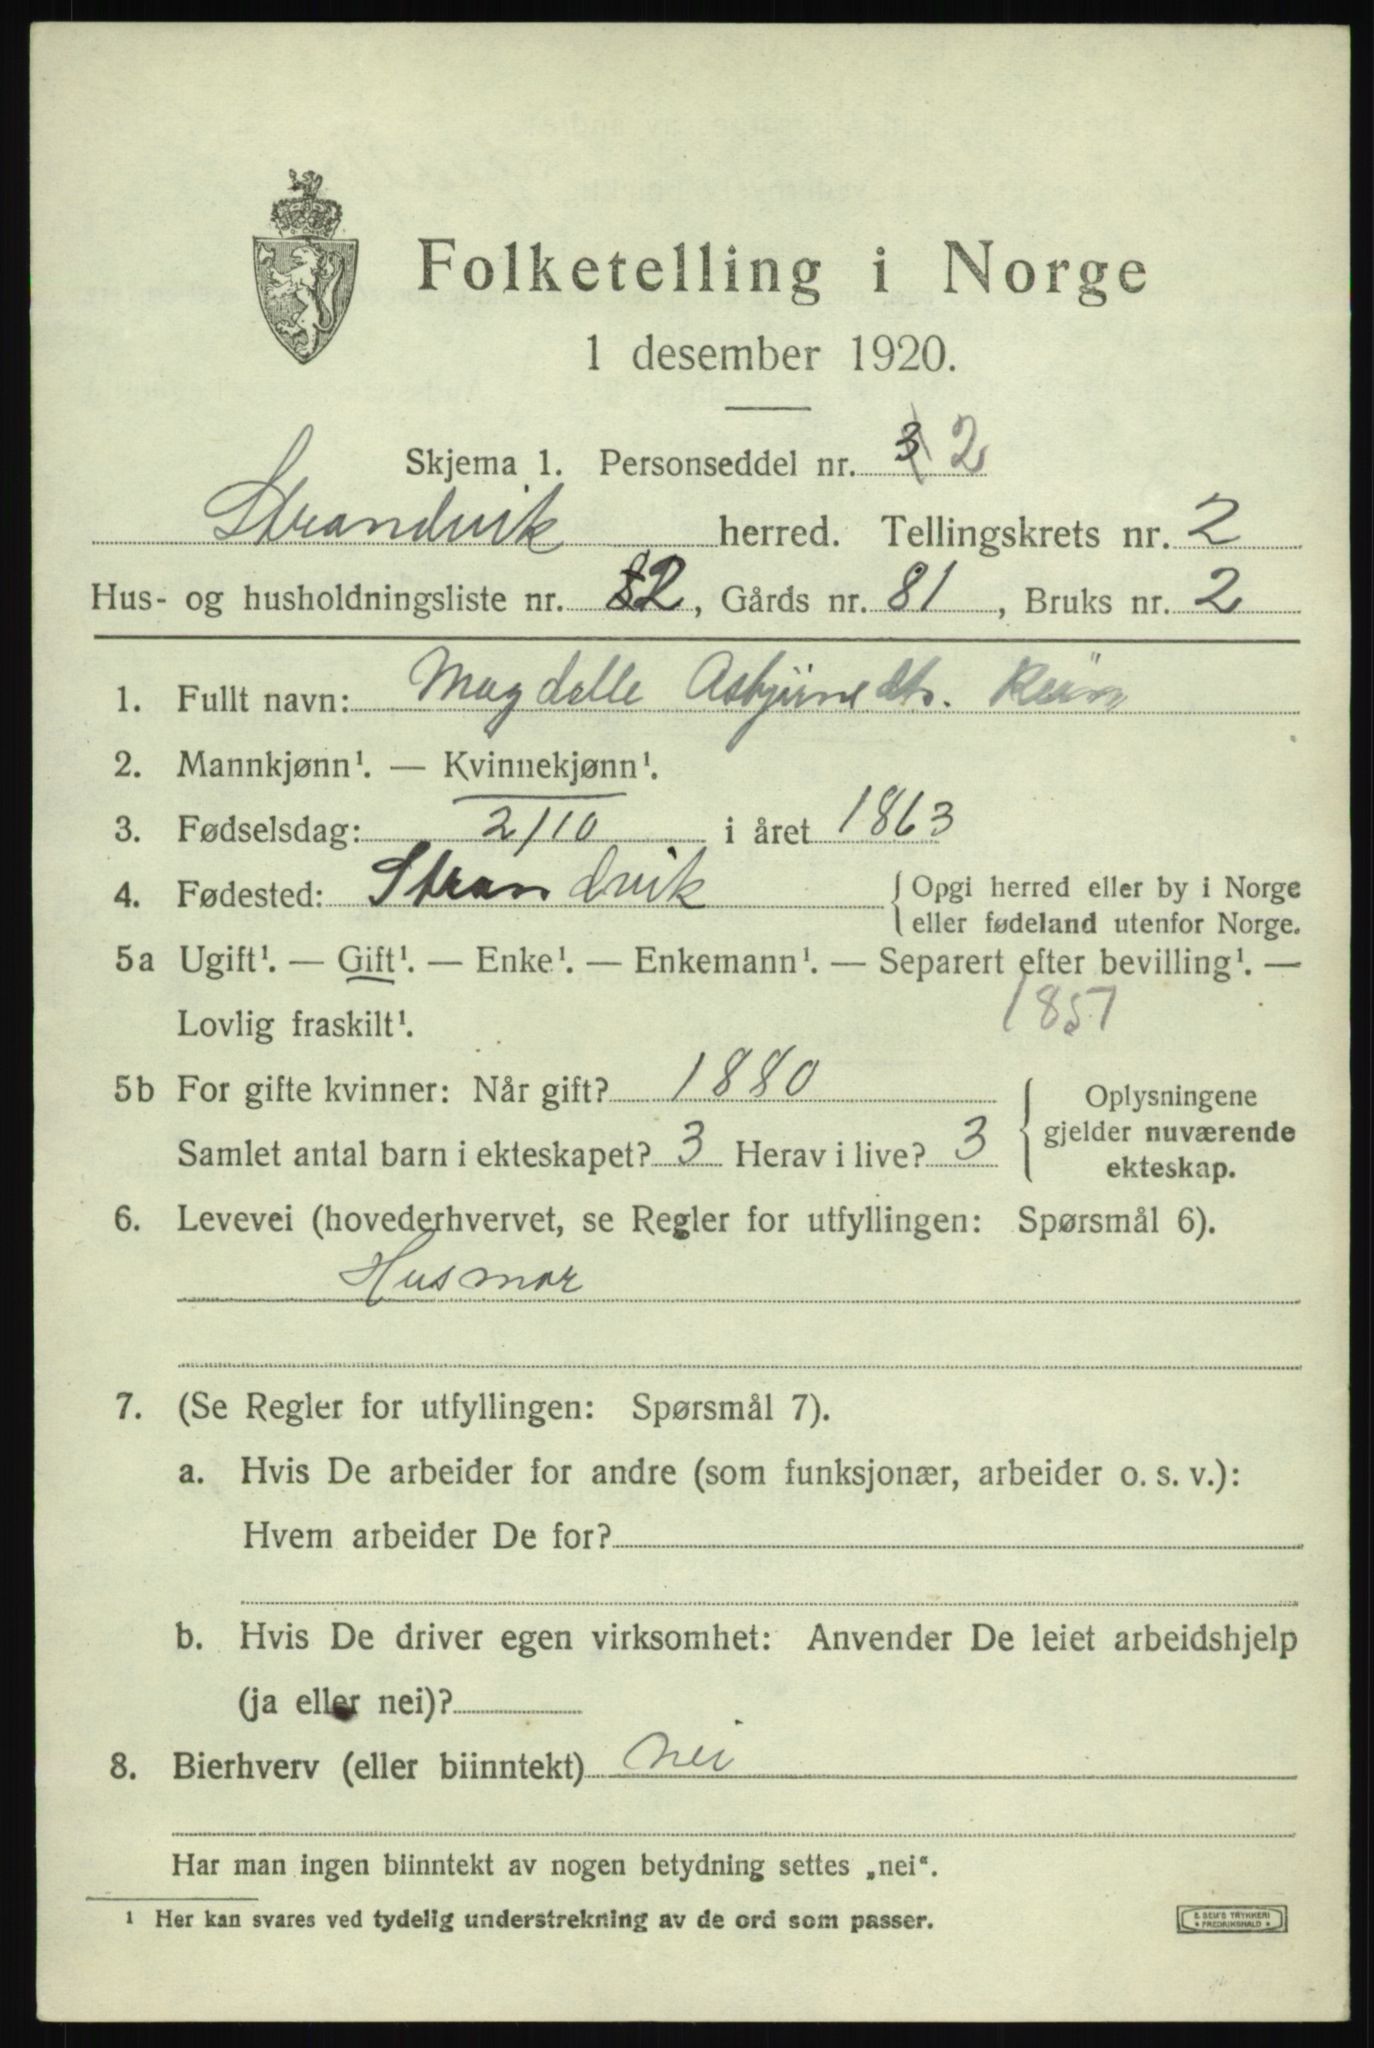 Folketelling i Norge
1 desember 1920.
Skjema 1. Personseddel nr. 3 2
Strandvik herred. Tellingskrets nr. 2
Hus- og husholdningsliste nr. 82, Gårds nr. 81, Bruks nr. 2
1. Fullt navn: Magdelle Asbjørnsdtr.
2. Mannkjønn¹. — Kvinnekjønn¹.
3. Fødselsdag: 2/10 i året 1863
4. Fødested: Strandvik { Opgi herred eller by i Norge
eller fødeland utenfor Norge.
5a Ugift¹. — Gift¹. — Enke¹. — Enkemann¹. — Separert efter bevilling¹. —
Lovlig fraskilt¹. 1857
5b For gifte kvinner: Når gift? 1880 Oplysningene
gjelder nuværende
Samlet antal barn i ekteskapet? 3 Herav i live? 3 ekteskap.
6. Levevei (hovederhvervet, se Regler for utfyllingen: Spørsmål 6).
Husmor
7. (Se Regler for utfyllingen: Spørsmål 7).
a. Hvis De arbeider for andre (som funksjonær, arbeider o. s. v.):
Hvem arbeider De for?
b. Hvis De driver egen virksomhet: Anvender De leiet arbeidshjelp
(ja eller nei)?
8. Bierhverv (eller biinntekt) nei
Har man ingen biinntekt av nogen betydning settes „nei“.
¹ Her kan svares ved tydelig understrekning av de ord som passer.
E. SEM'S TRYKKERI
* FREDRIKSHALD *